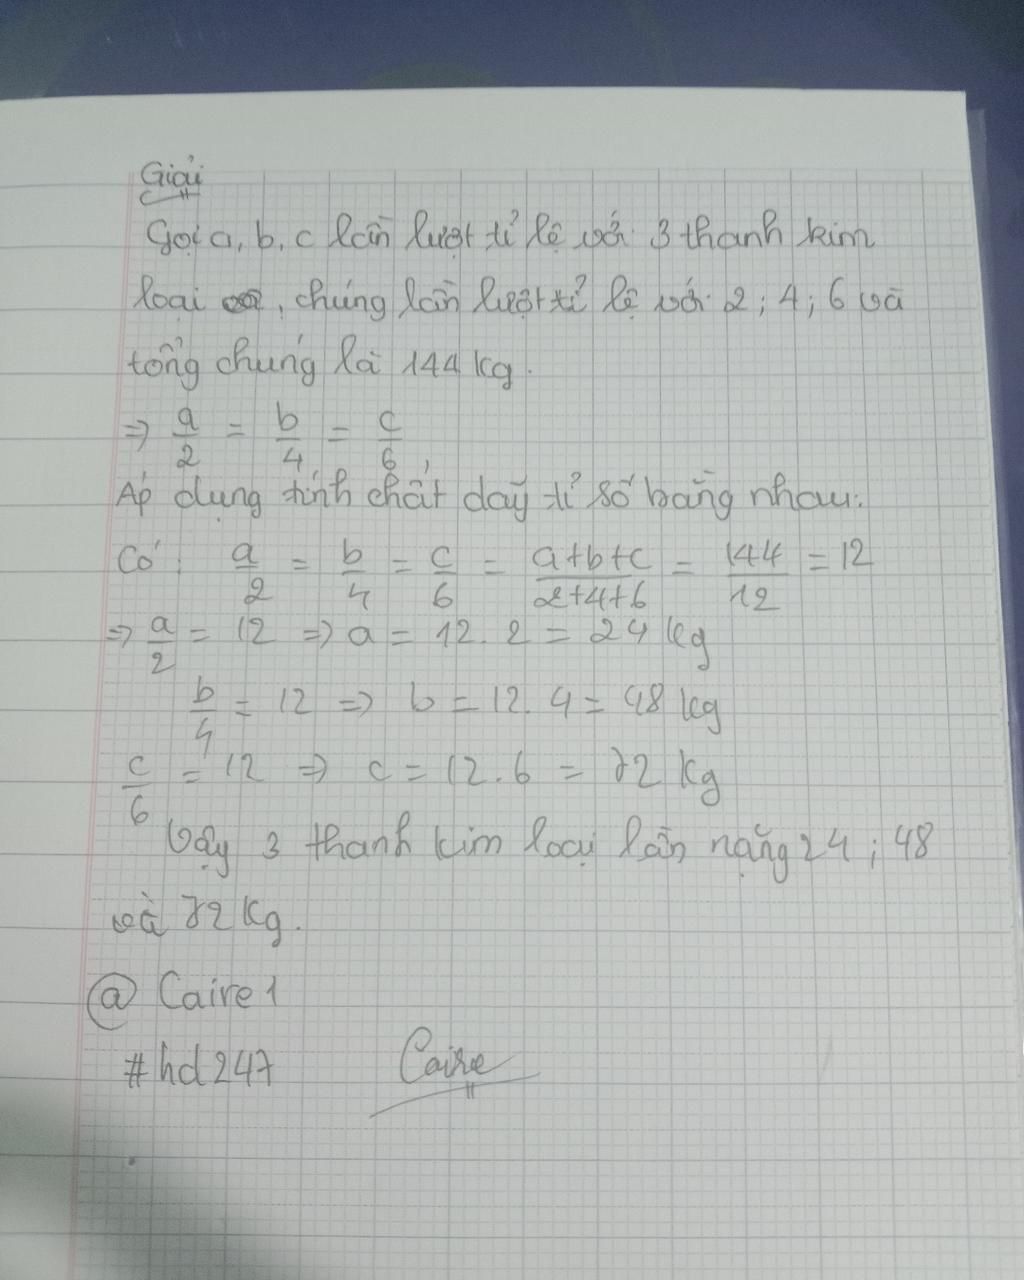 Giải
Gọi a, b, c lần lượt tỉ lệ với 3 thanh kim
loại , chúng lần lượt tỉ lệ với 2 ; 4 ; 6 và
tổng chúng là 144 kg .
=> a/2 = b/4 = c/6 ,
Áp dụng tính chất dãy tỉ số bằng nhau:
Có : a/2 = b/4 = c/6 = a+b+c/2+4+6 = 144/12 = 12
=> a/2 = 12 => a = 12 . 2 = 24 kg
b/4 = 12 => b = 12 . 4 = 48 kg
c/6 = 12 => c = 12 . 6 = 72 kg
Vậy 3 thanh kim loại lần nặng 24 ; 48
và 72 kg .
@ Caire 1
#hd247
Caire